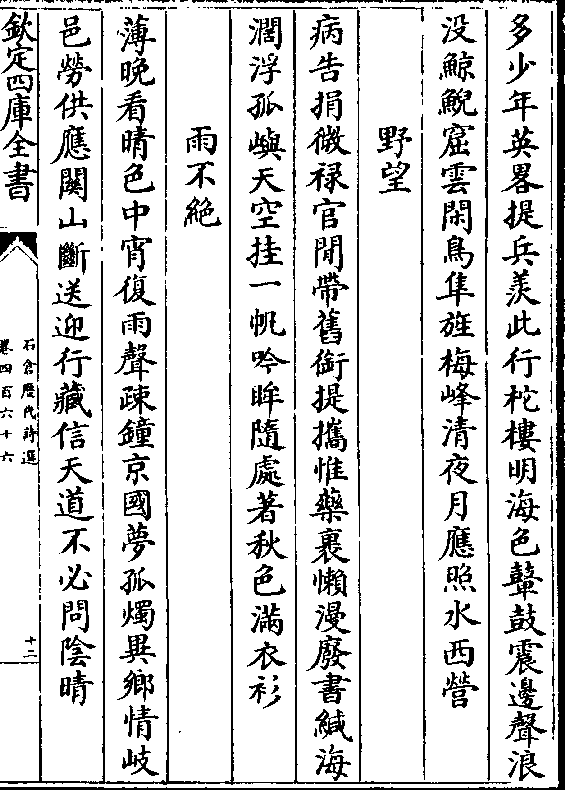 多少年英畧提兵羨此行柁樓明海色鼙鼓震邊聲浪
没鯨鯢窟雲閑鳥隼旌梅峰清夜月應照水西營
野望
病告捐微禄官閒帶舊銜提攜惟藥裹懶漫廢書緘海
濶浮孤嶼天空挂一帆吟眸隨處著秋色滿衣衫
雨不絶
薄晚看晴色中宵復雨聲疎鐘京國夢孤燭異鄉情岐
邑勞供應關山斷送迎行藏信天道不必問陰晴
欽定四庫全書
石倉歷代詩選
卷四百六十六
十二